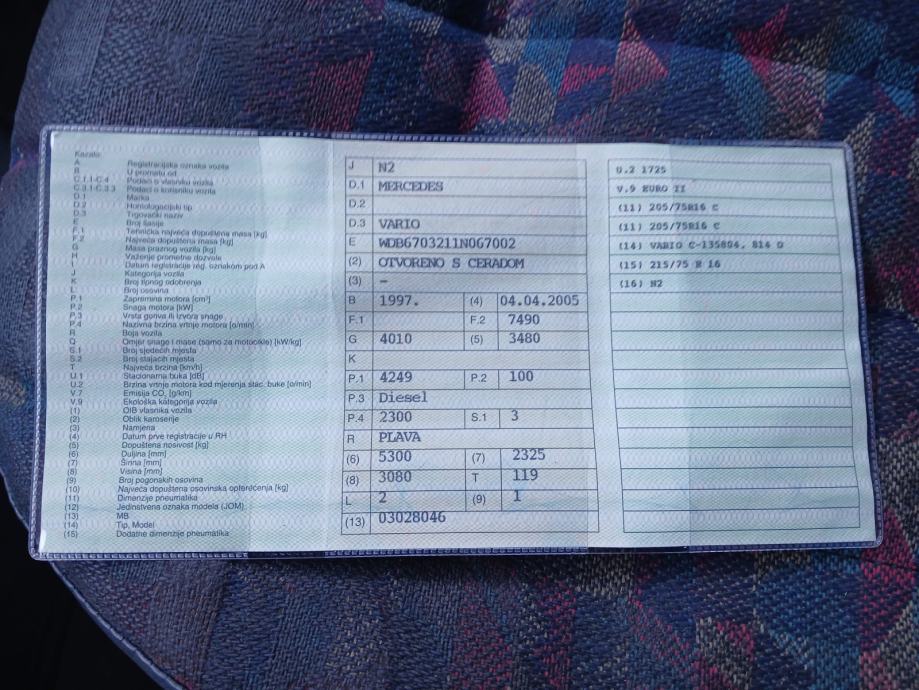 Kazalo:
A Registracijska oznaka vozila
B U prometu od
C.1.1-C.4 Podaci o vlasniku vozila
C.3.1-C.3.3 Podaci o korisniku vozila
D.1 Marka
D.2 Homologacijski tip
D.3 Trgovački naziv
E Broj šasije
F.1 Tehnička najveća dopuštena masa [kg]
F.2 Najveća dopuštena masa [kg]
G Masa praznog vozila [kg]
H Važenje prometne dozvole
I Datum registracije reg. oznakom pod A
J Kategorija vozila
K Broj tipnog odobrenja
L Broj osovina
P.1 Zapremina motora [cm³]
P.2 Snaga motora [kW]
P.3 Vrsta goriva ili izvora snage
P.4 Nazivna brzina vrtnje motora [o/min]
R Boja vozila
Q Omjer snage i mase (samo za motocikle) [kW/kg]
S.1 Broj sjedećih mjesta
S.2 Broj stajaćih mjesta
T Najveća brzina [km/h]
U.1 Stacionarna buka [dB]
U.2 Brzina vrtnje motora kod mjerenja stac. buke [o/min]
V.7 Emisija CO₂ [g/km]
V.9 Ekološka kategorija vozila
(1) OIB vlasnika vozila
(2) Oblik karoserije
(3) Namjena
(4) Datum prve registracije u RH
(5) Dopuštena nosivost [kg]
(6) Duljina [mm]
(7) Širina [mm]
(8) Visina [mm]
(9) Broj pogonskih osovina
(10) Najveća dopuštena osovinska opterećenja [kg]
(11) Dimenzije pneumatika
(12) Jedinstvena oznaka modela (JOM)
(13) MB
(14) Tip, Model
(15) Dodatne dimenzije pneumatika
J N2
D.1 MERCEDES
D.2
D.3 VARIO
E WDB6703211N067002
(2) OTVORENO S CERADOM
(3) –
B 1997. (4) 04.04.2005
F.1 F.2 7490
G 4010 (5) 3480
K
P.1 4249 P.2 100
P.3 Diesel
P.4 2300 S.1 3
R PLAVA
(6) 5300 (7) 2325
(8) 3080 T 119
L 2 (9) 1
(13) 03028046
U.2 1725
V.9 EURO II
(11) 205/75R16 C
(11) 205/75R16 C
(14) VARIO C-135804, 814 D
(15) 215/75 R 16
(16) N2